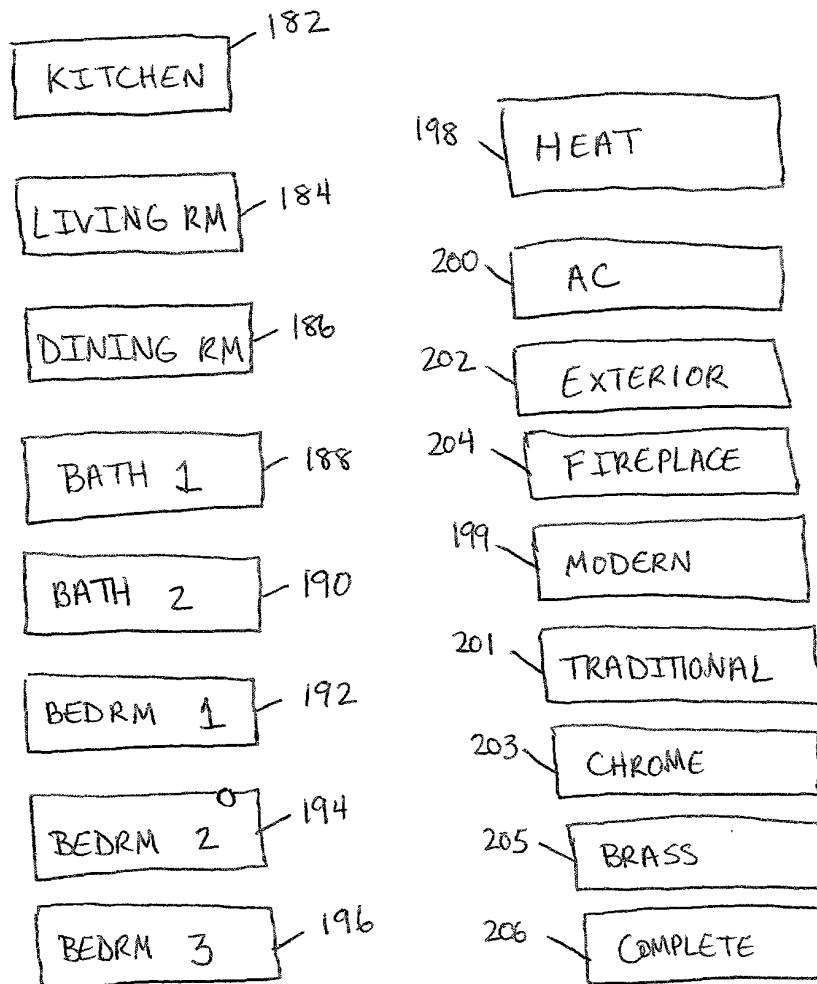 182
KITCHEN
LIVING RM
184
DINING RM
186
BATH 1
188
BATH 2
190
BEDRM 1
192
BEDRM 2
194
BEDRM 3
196
198
HEAT
200
AC
202
EXTERIOR
204
FIREPLACE
199
MODERN
201
TRADITIONAL
203
CHROME
205
BRASS
206
COMPLETE